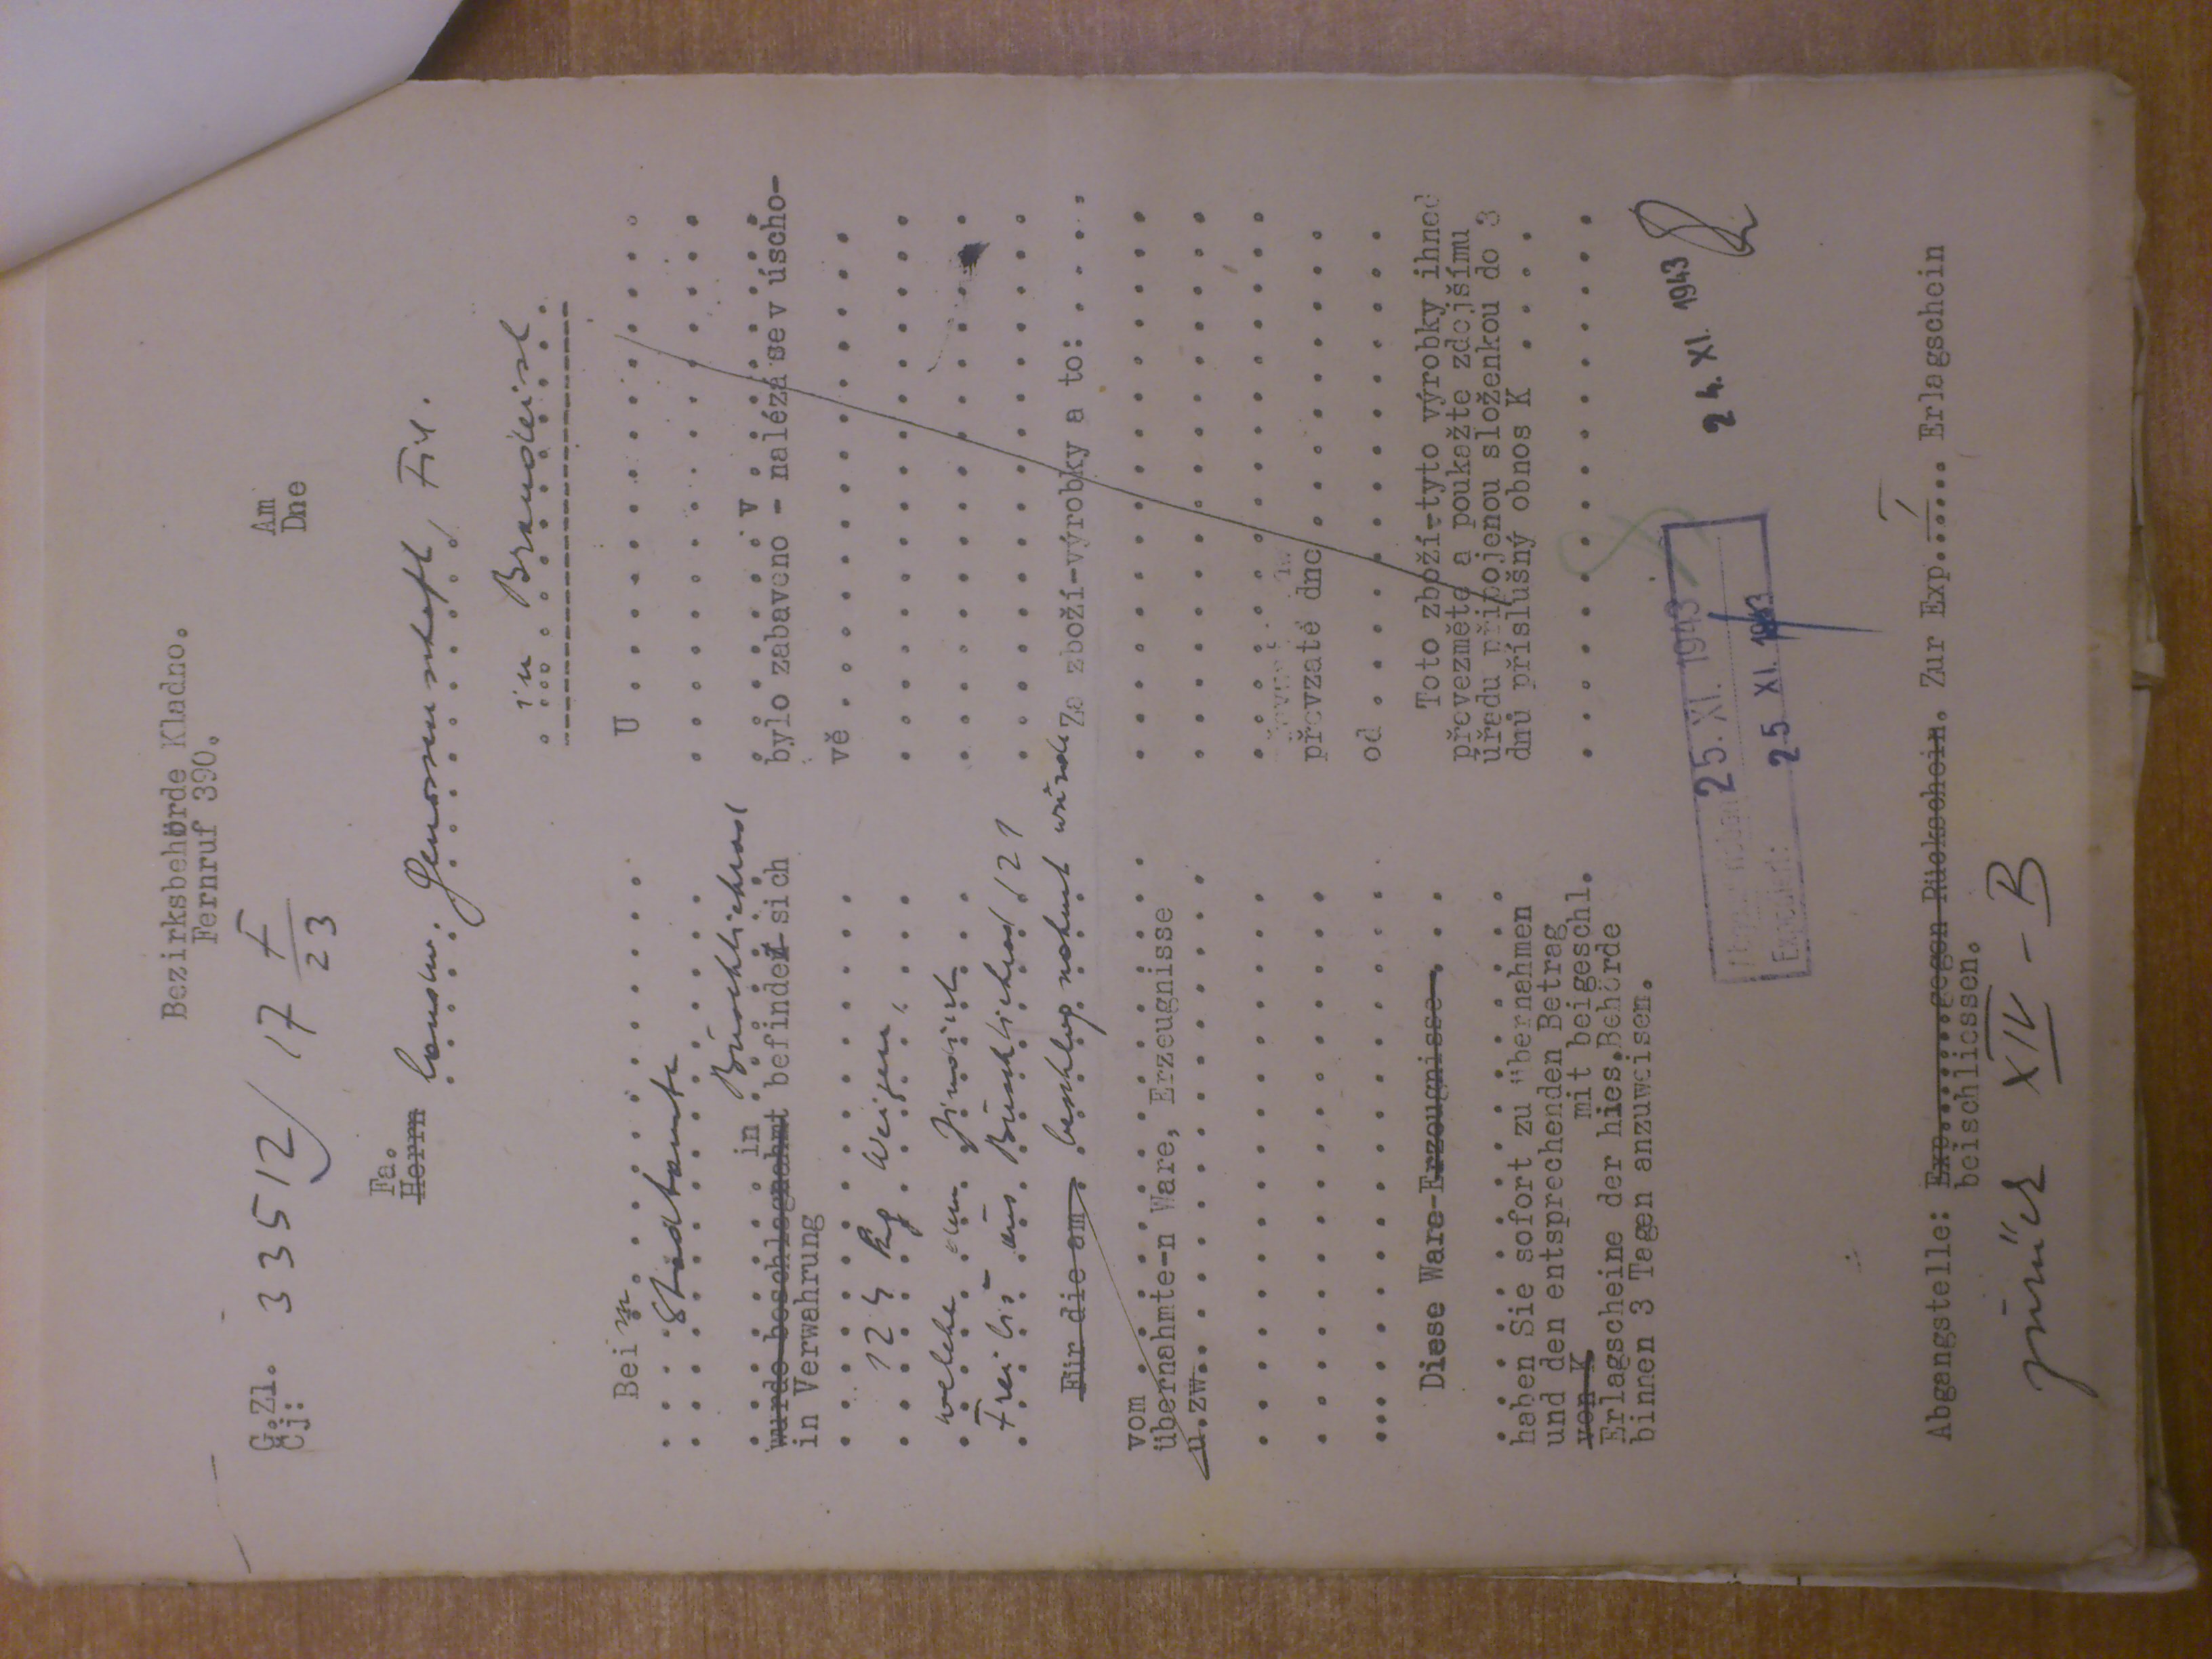 Bezirksbehörde Kladno.
Fernruf 390.
G.Zl.
Čj:
33512/17 F/23
Am
Dne
Fa.
Herrn
landw. Genossenschaft, Fil.
in Brandeisl
Bei m
Stadtamte
in Buschtiehrad
wurde beschlagnahmt befindet sich
in Verwahrung
124 kg Weizen,
welche dem Jindřich
Freibiš aus Buschtiehrad 121
Für die am beschlagnahmt wurde
vom
übernahmte-n Ware, Erzeugnisse
u.zw.
Diese Ware-Erzeugnisse
haben Sie sofort zu übernehmen
und den entsprechenden Betrag
von K mit beigeschl.
Erlagscheine der hies.Behörde
binnen 3 Tagen anzuweisen.
U
v
bylo zabaveno - nalézá se v úscho-
vě
Za zboží-výrobky a to:
převzaté dne
od
Toto zboží-tyto výrobky ihned
převezměte a poukažte zdejšímu
úřadu připojenou složenkou do 3
dnů příslušný obnos K
25. XI. 1943
Expediert: 25 XI. 1943
24. XI. 1943
Abgangstelle: Exp.......gegen Rückschein. Zur Exp. I Erlagschein
beischliessen.
zurück XIV - B